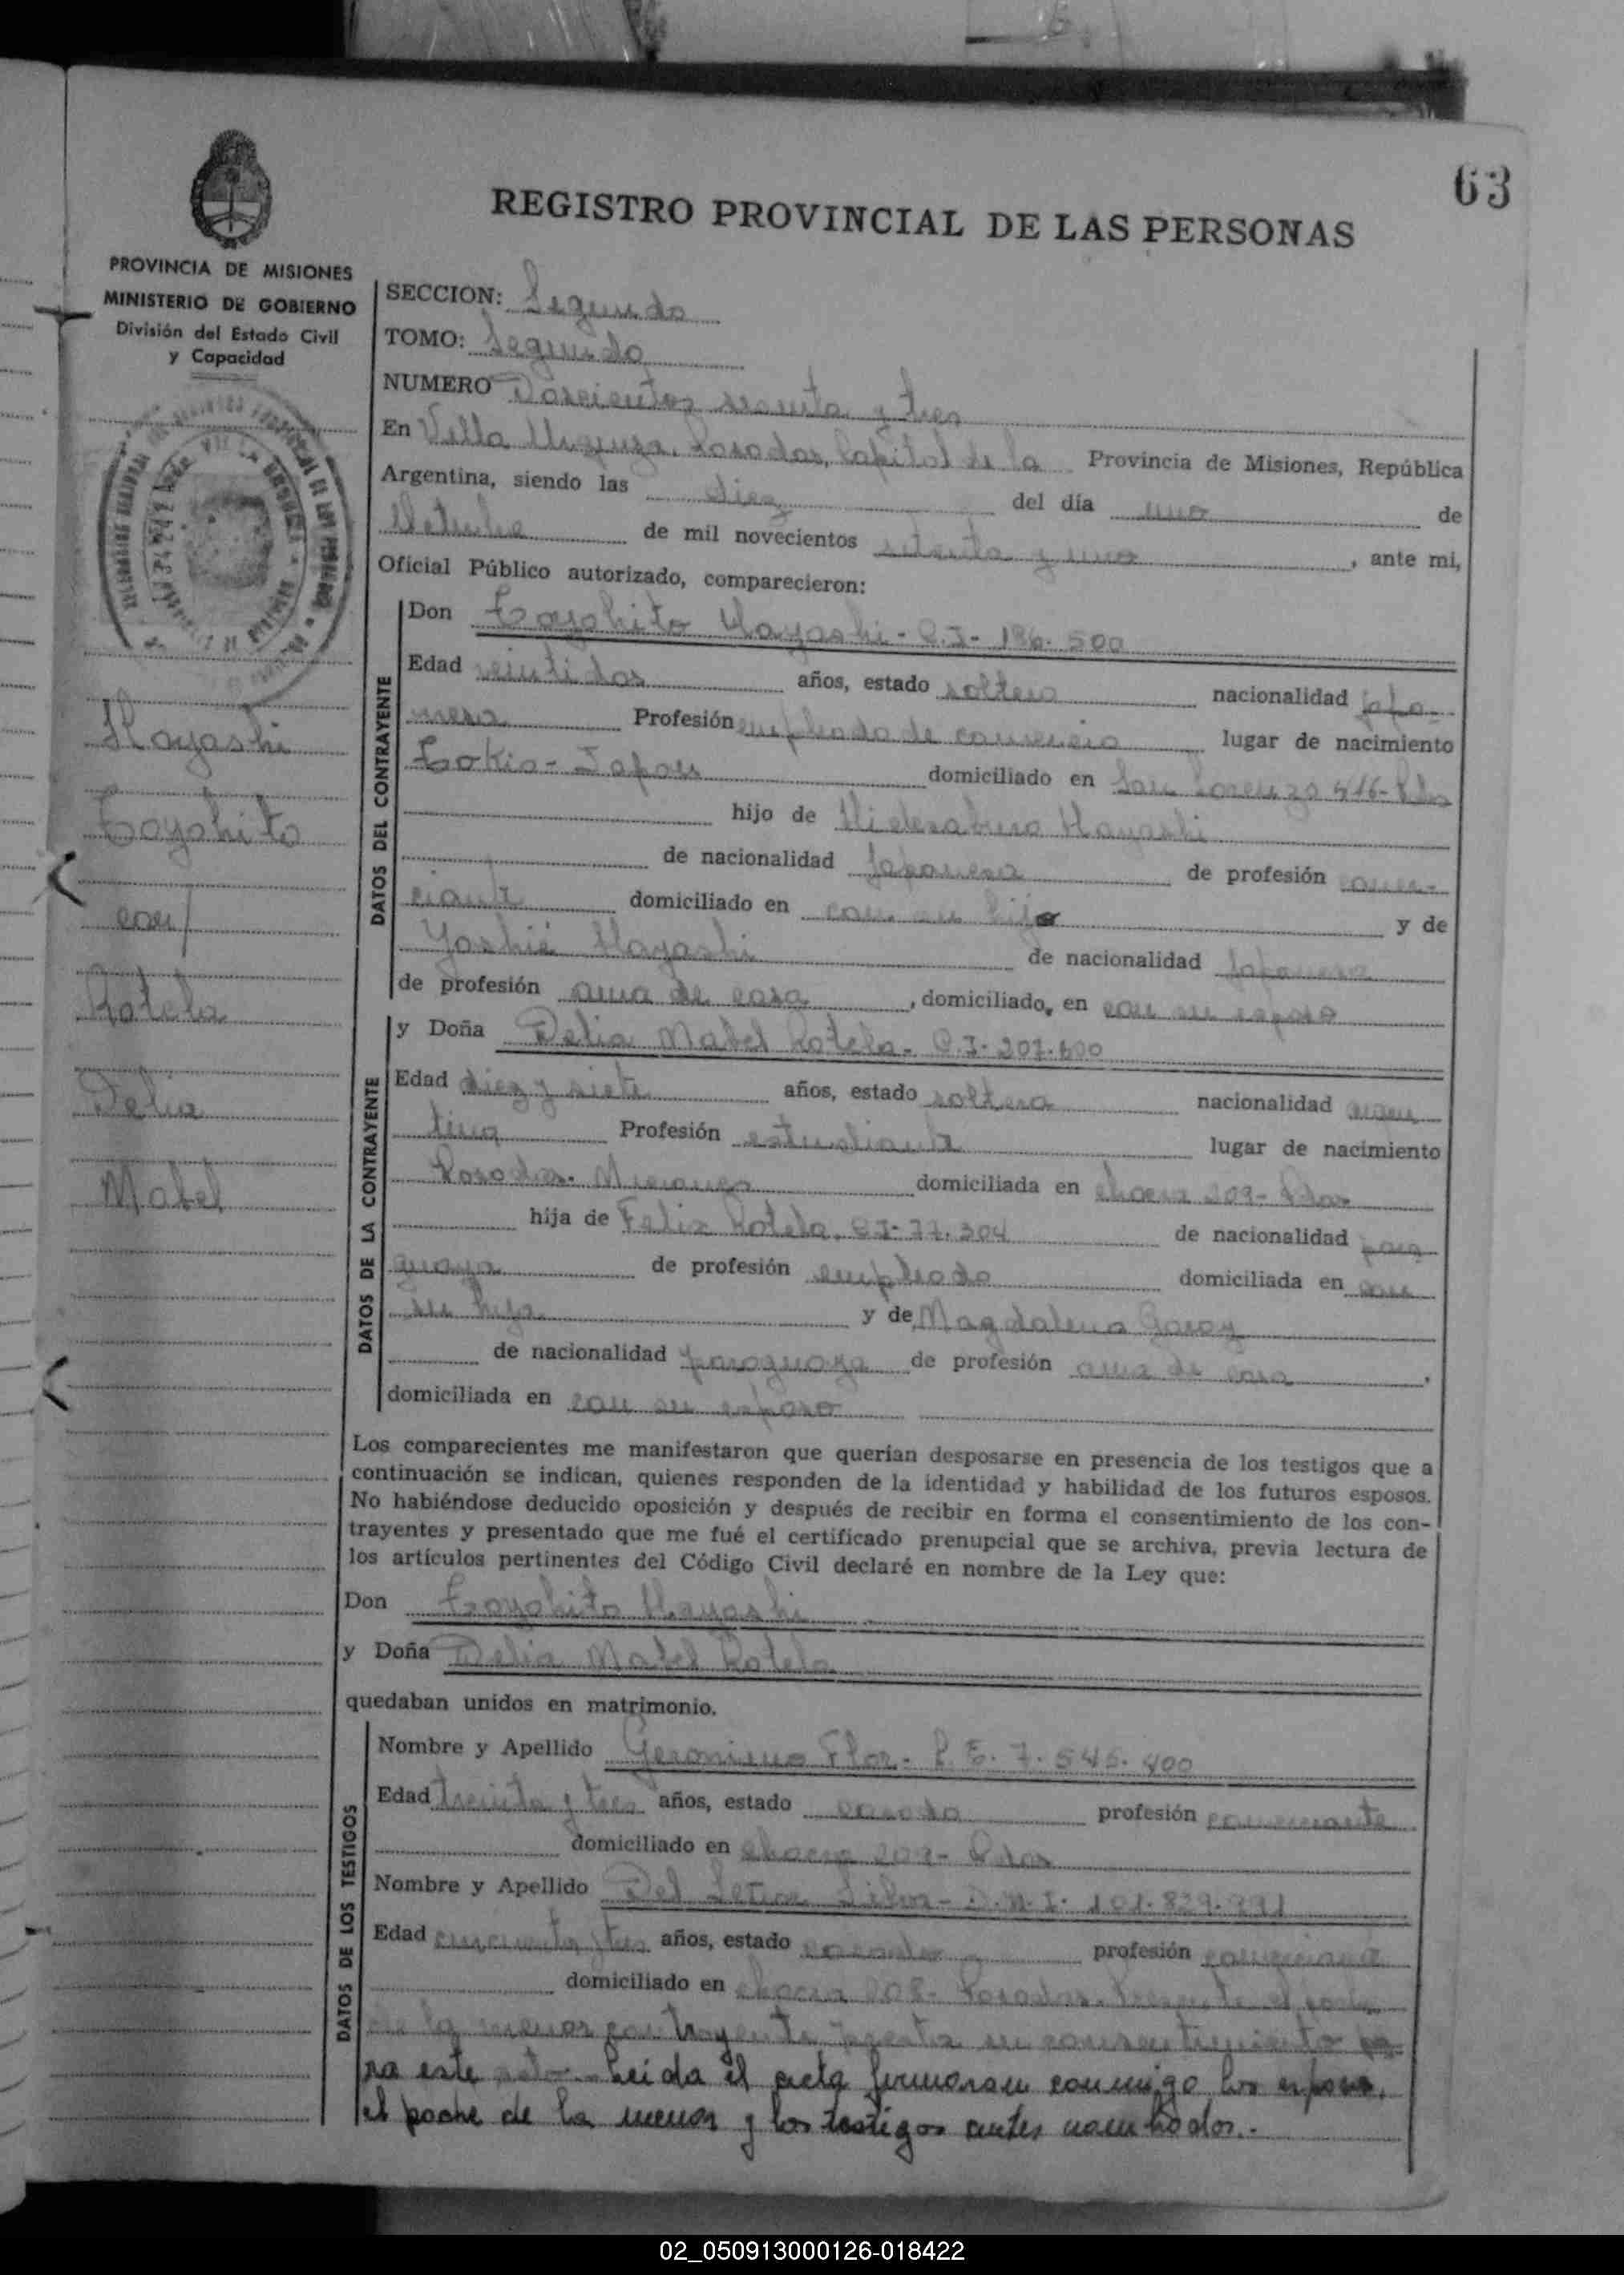 63
REGISTRO PROVINCIAL DE LAS PERSONAS
PROVINCIA DE MISIONES
MINISTERIO DE GOBIERNO
División del Estado Civil
y Capacidad
Hayashi
Toyohito
con/
Rotela
Delia
Mabel
SECCION: Segunda
TOMO: Segundo
NUMERO Doscientos sesenta y tres
En Villa Urquiza, Posadas, Capital de la Provincia de Misiones, República
Argentina, siendo las diez del día uno de
Octubre de mil novecientos setenta y uno, ante mi,
Oficial Público autorizado, comparecieron:
DATOS DEL CONTRAYENTE
Don Toyohito Hayashi - C.I- 196.500
Edad veintidos años, estado soltero nacionalidad japo-
nesa Profesión empleado de comercio lugar de nacimiento
Tokio - Japon domiciliado en San Lorenzo 516- Pdas
hijo de Hidesaburo Hayashi
de nacionalidad Japonesa de profesión comer-
ciante domiciliado en con su hijo y de
Yoshié Hayashi de nacionalidad Japonesa
de profesión ama de casa, domiciliado, en con su esposo
DATOS DE LA CONTRAYENTE
y Doña Delia Mabel Rotela - C.I- 207.600
Edad diez y siete años, estado soltera nacionalidad argen
tina Profesión estudiante lugar de nacimiento
Posadas- Misiones domiciliada en chacra 209- Pdas
hija de Felix Rotela, CI- 77.304 de nacionalidad para
guaya de profesión empleado domiciliada en con
su hija y de Magdalena Garay
de nacionalidad paraguaya de profesión ama de casa,
domiciliada en con su esposo
Los comparecientes me manifestaron que querían desposarse en presencia de los testigos que a
continuación se indican, quienes responden de la identidad y habilidad de los futuros esposos.
No habiéndose deducido oposición y después de recibir en forma el consentimiento de los con-
trayentes y presentado que me fué el certificado prenupcial que se archiva, previa lectura de
los artículos pertinentes del Código Civil declaré en nombre de la Ley que:
Don Toyohito Hayashi
y Doña Delia Mabel Rotela
quedaban unidos en matrimonio.
DATOS DE LOS TESTIGOS
Nombre y Apellido Geronimo Flor - L.E. 7.545.400
Edad treinta y tres años, estado casado profesión comerciante
domiciliado en chacra 209- Pdas
Nombre y Apellido Del Silva - D.N.I.
Edad cincuenta y tres años, estado casado profesión comerciante
domiciliado en chacra 208- Posadas. Presente el padre
de la menor contrayente presta su consentimiento pa-
ra este acto.- Leida el acta firmaron conmigo los esposos,
el padre de la menor y los testigos antes nombrados.-
02_050913000126-018422